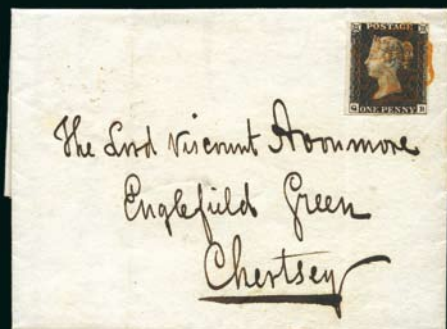 POSTAGE
G B
ONE PENNY
The Lord Viscount Avonmore
Englefield Green
Chertsey